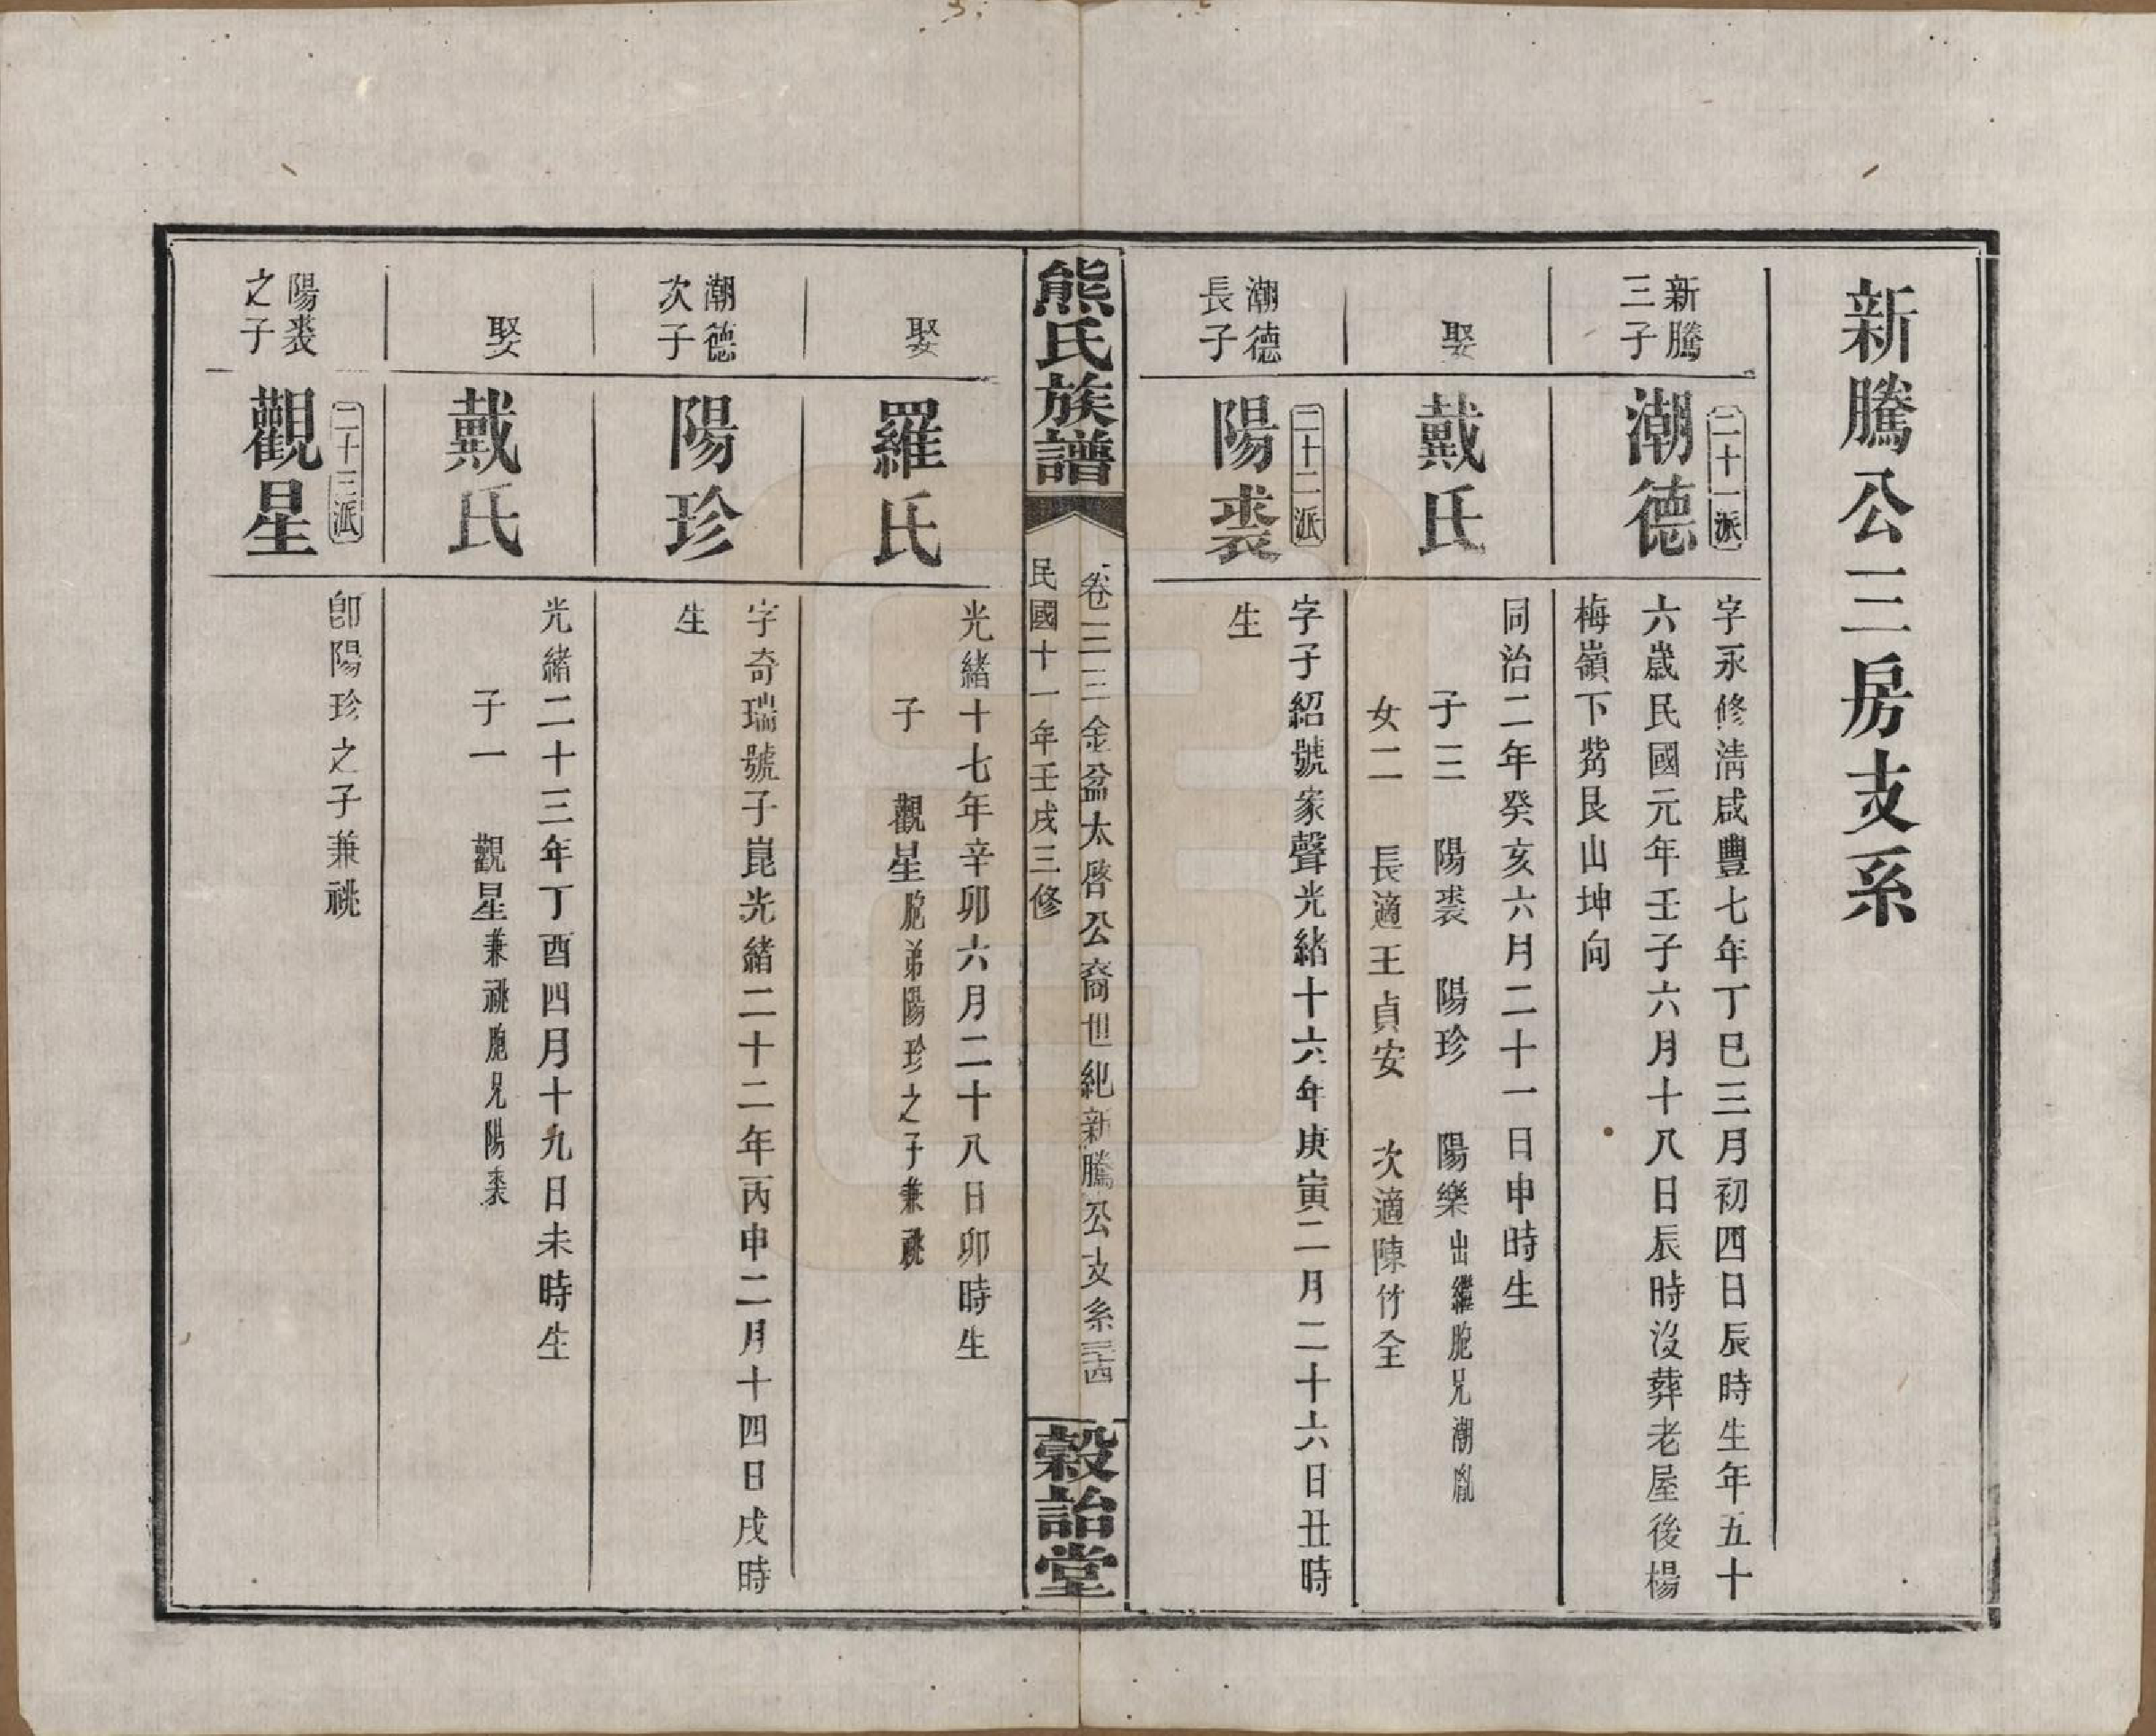 新騰公三房支系
新騰
三子
二十一派
潮德
字永修清咸豐七年丁巳三月初四日辰時生年五十
六歲民國元年壬子六月十八日辰時沒葬老屋後楊
梅嶺下觜艮山坤向
娶
戴氏
同治二年癸亥六月二十一日申時生
子三 陽裘 陽珍 陽樂出繼胞兄潮胤
女二 長適王貞安 次適陳竹全
潮德
長子
二十二派
陽裘
字子紹號家聲光緒十六年庚寅二月二十六日丑時
生
熊氏族譜
卷三三金盆太啓公裔世紀新騰公支系
民國十一年壬戌三修
穀詒堂
娶
羅氏
光緒十七年辛卯六月二十八日卯時生
子 觀星胞弟陽珍之子兼祧
潮德
次子
陽珍
字奇瑞號子崑光緒二十二年丙申二月十四日戌時
生
娶
戴氏
光緒二十三年丁酉四月十九日未時生
子一 觀星兼祧胞兄陽裘
陽裘
之子
二十三派
觀星
卽陽珍之子兼祧